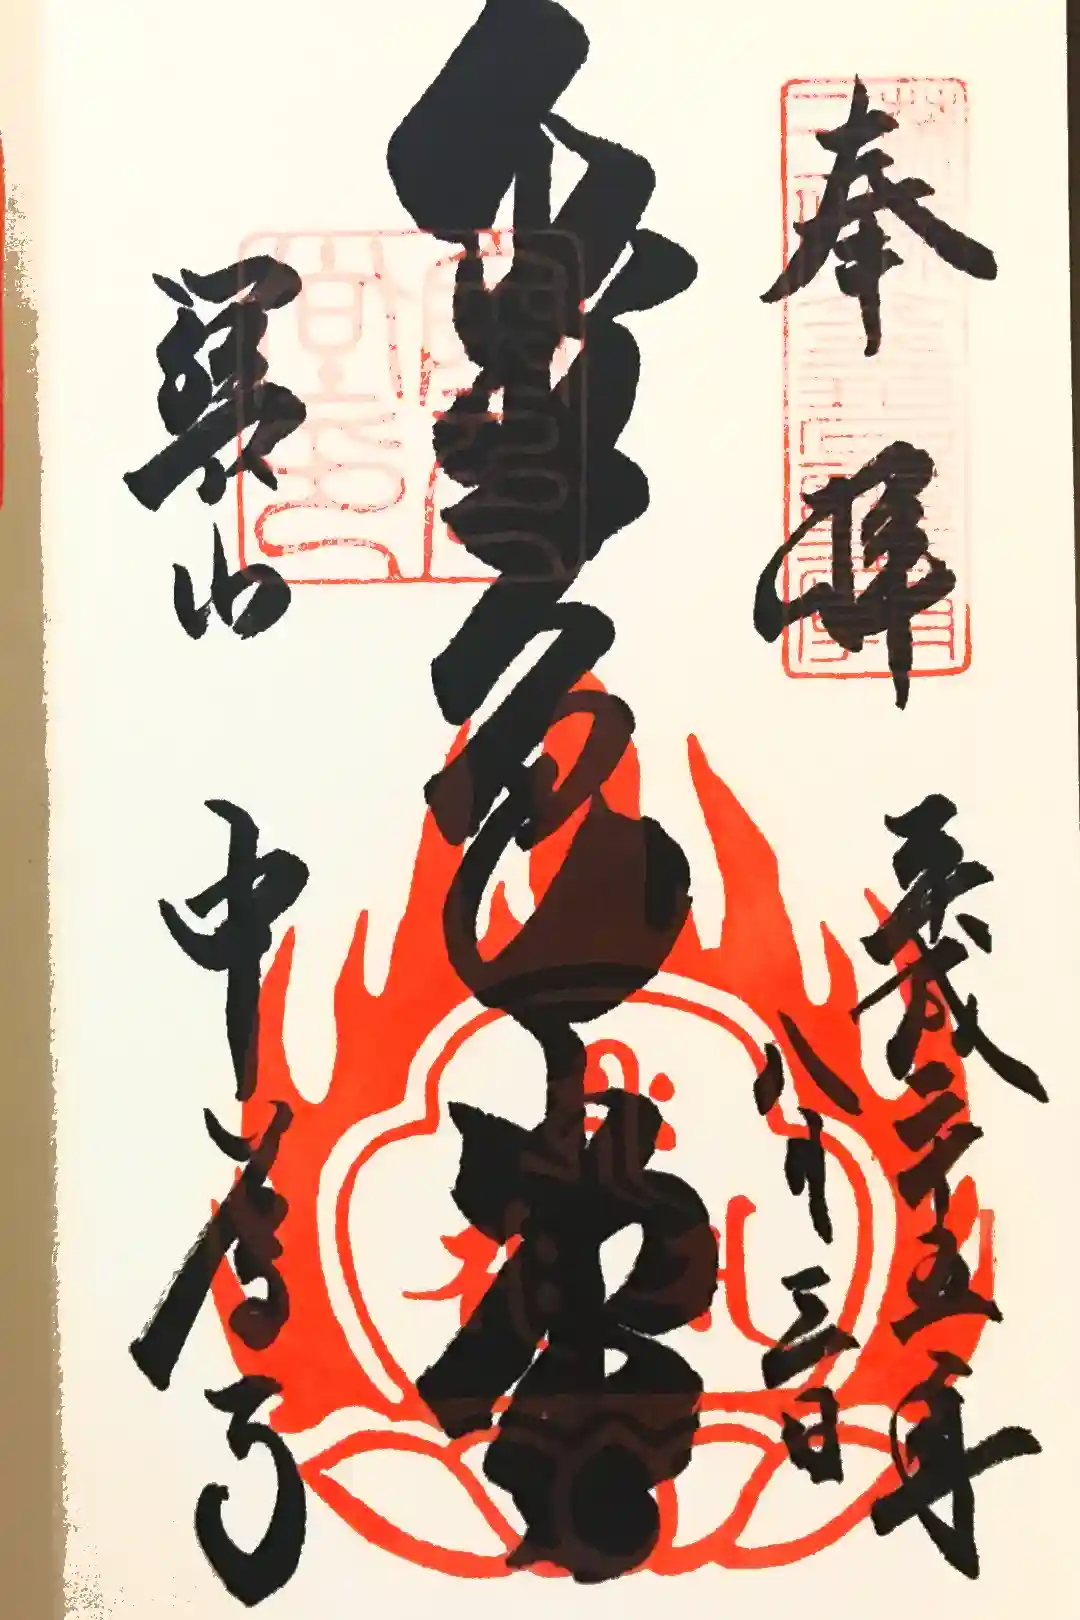 奉拝
平成二十五年
八月三日
金色堂
関山
中尊寺